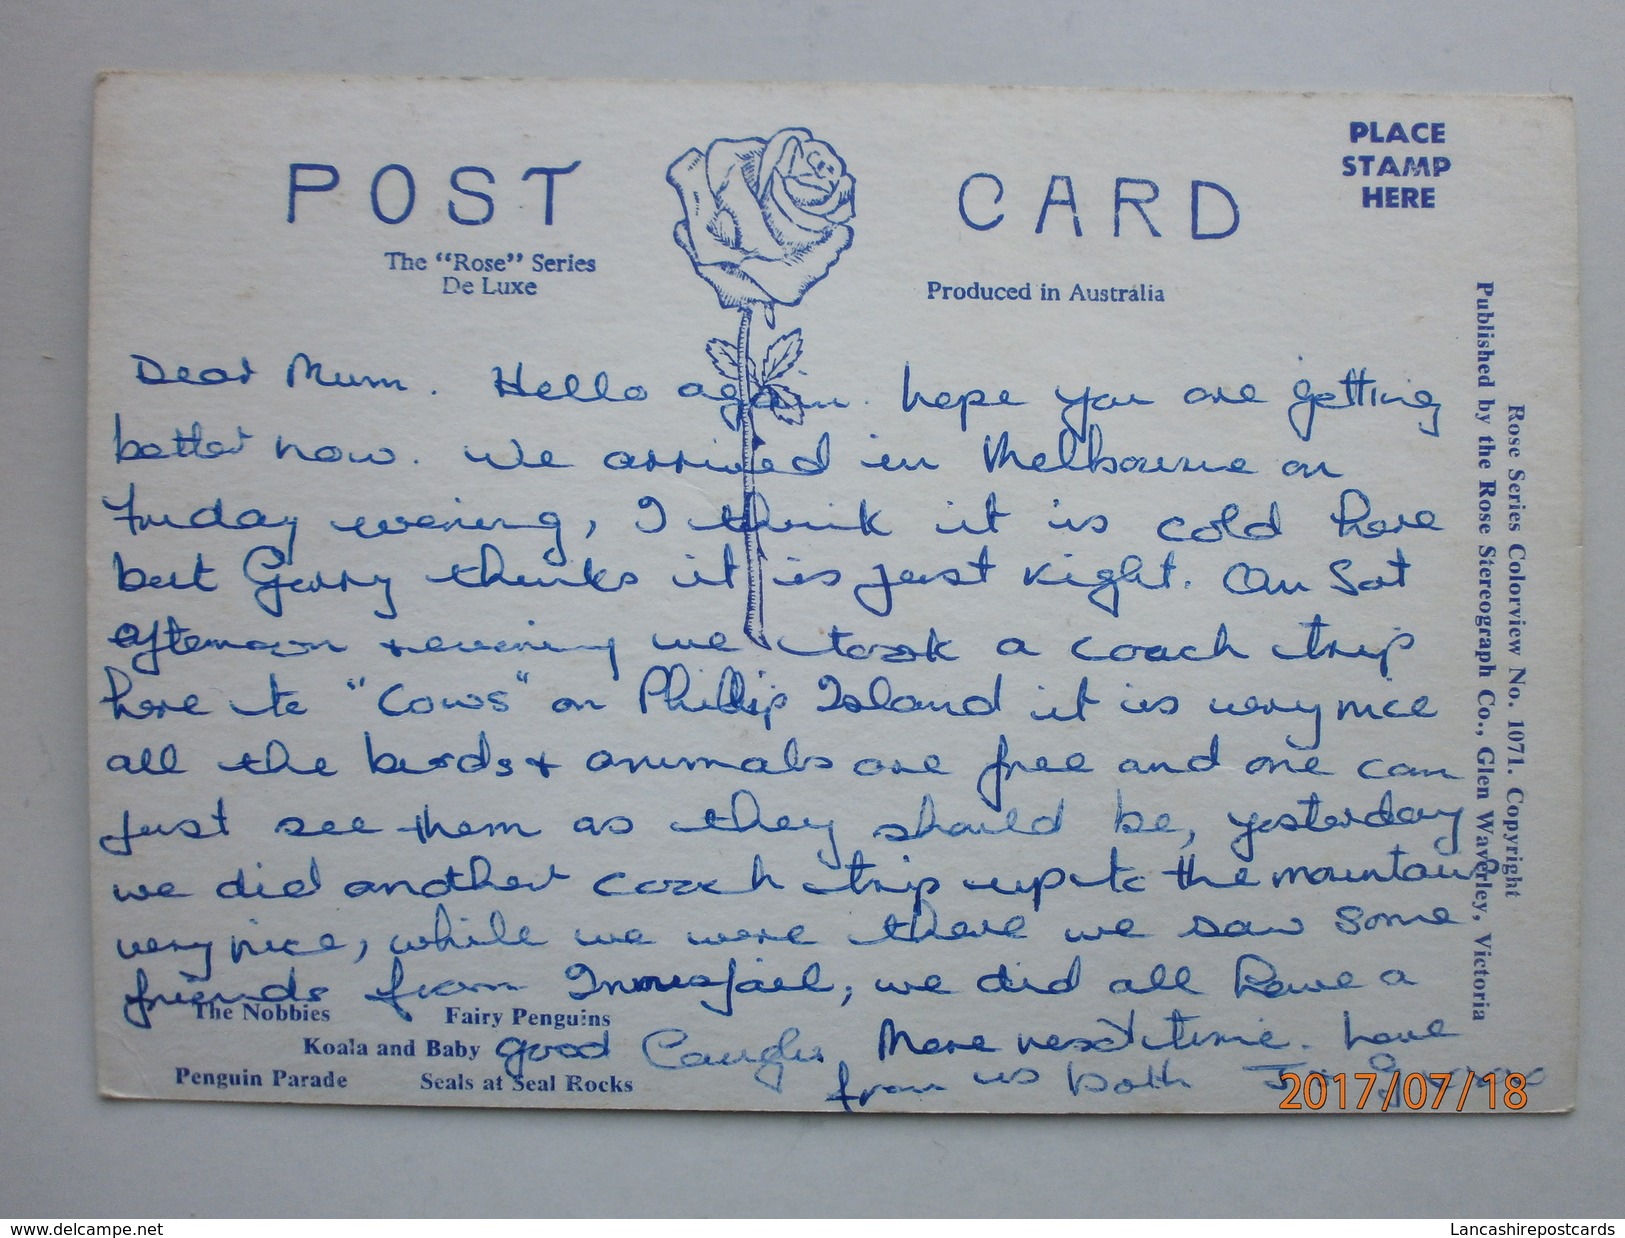 POST CARD
PLACE
STAMP
HERE
The "Rose" Series
De Luxe
Produced in Australia
Dear Mum. Hello again. hope you are getting
better now. We arrived in Melbourne on
Friday evening, I think it is cold here
but Garry thinks it is just right. On Sat
afternoon + evening we took a coach trip
here to "Cows" on Phillip Island it is very nice
all the birds + animals are free and one can
just see them as they should be, yesterday
we did another coach trip up to the mountains
very nice, while we were there we saw some
friends from Innisfail, we did all have a
good laugh. More next time. Love
from us both
The Nobbies Fairy Penguins
Koala and Baby
Penguin Parade Seals at Seal Rocks
Rose Series Colorview No. 1071. Copyright
Published by the Rose Stereograph Co., Glen Waverley, Victoria
2017/07/18
www.delcampe.net
Lancashirepostcards